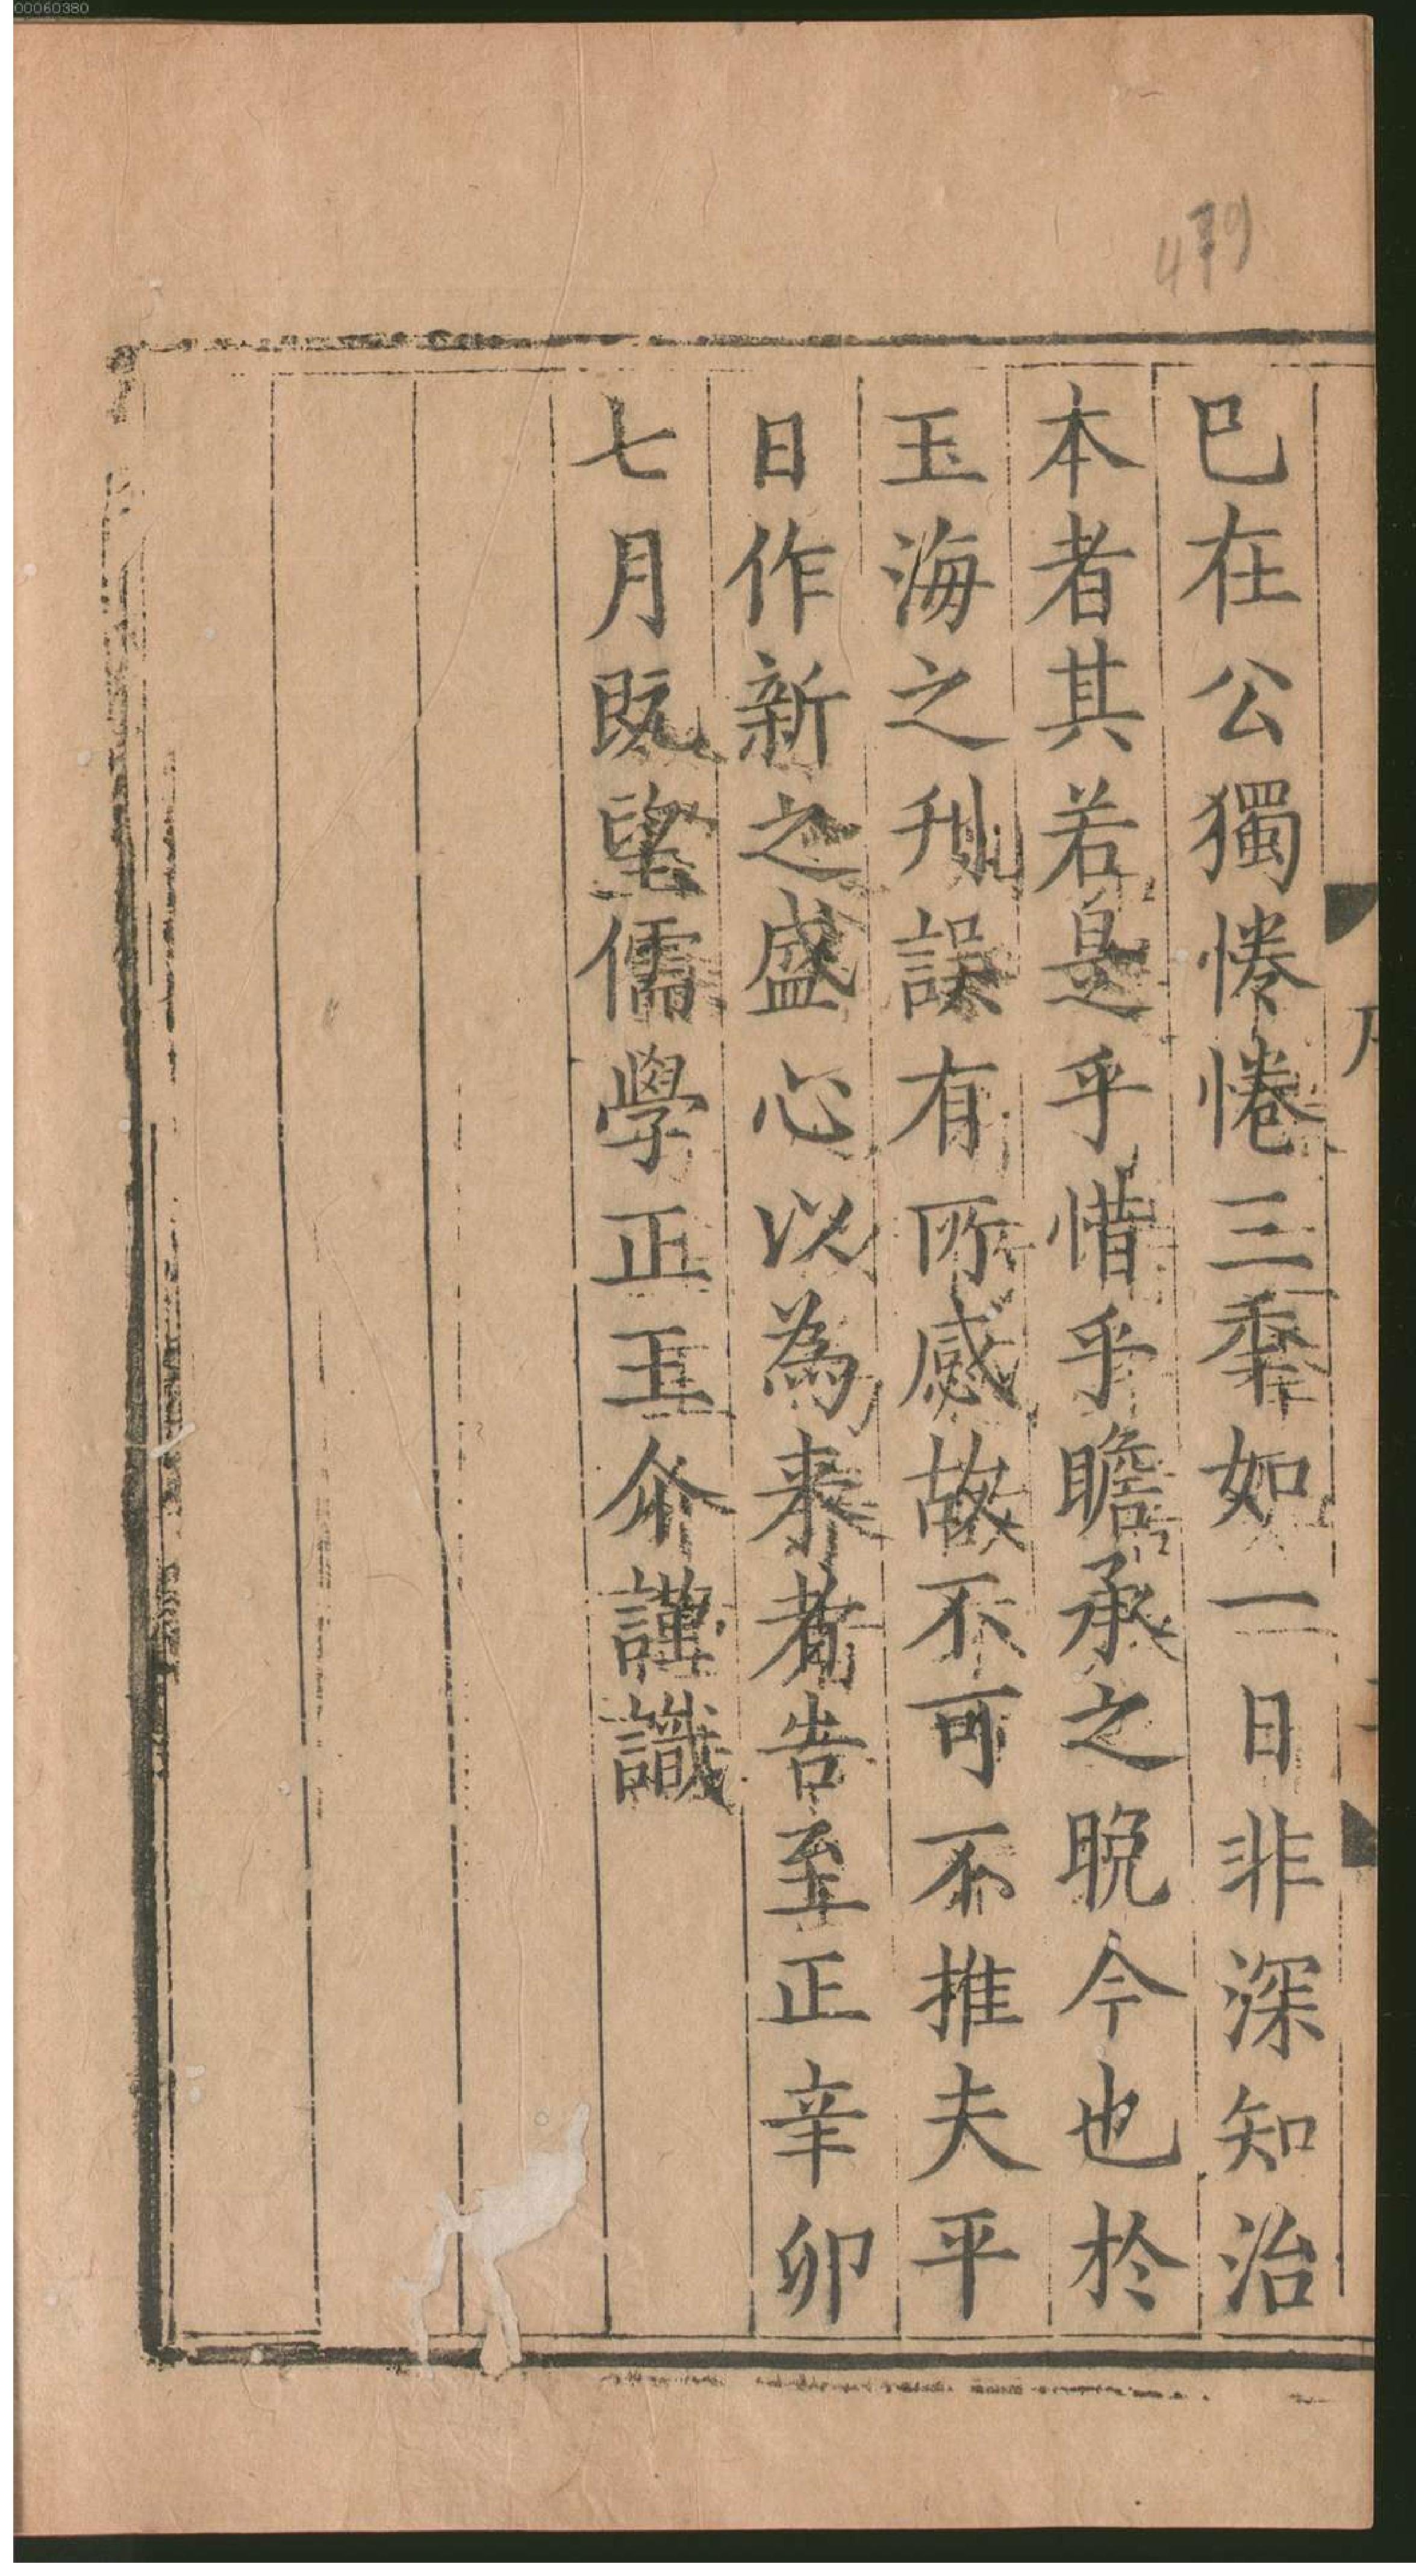 已在公獨惓惓三秊如一日非深知治
本者其若是乎惜乎瞻承之晚今也於
玉海之刋誤有所感故不可不推夫平
日作新之盛心以為来者告至正辛卯
七月既望儒學正王介謹識
00060380